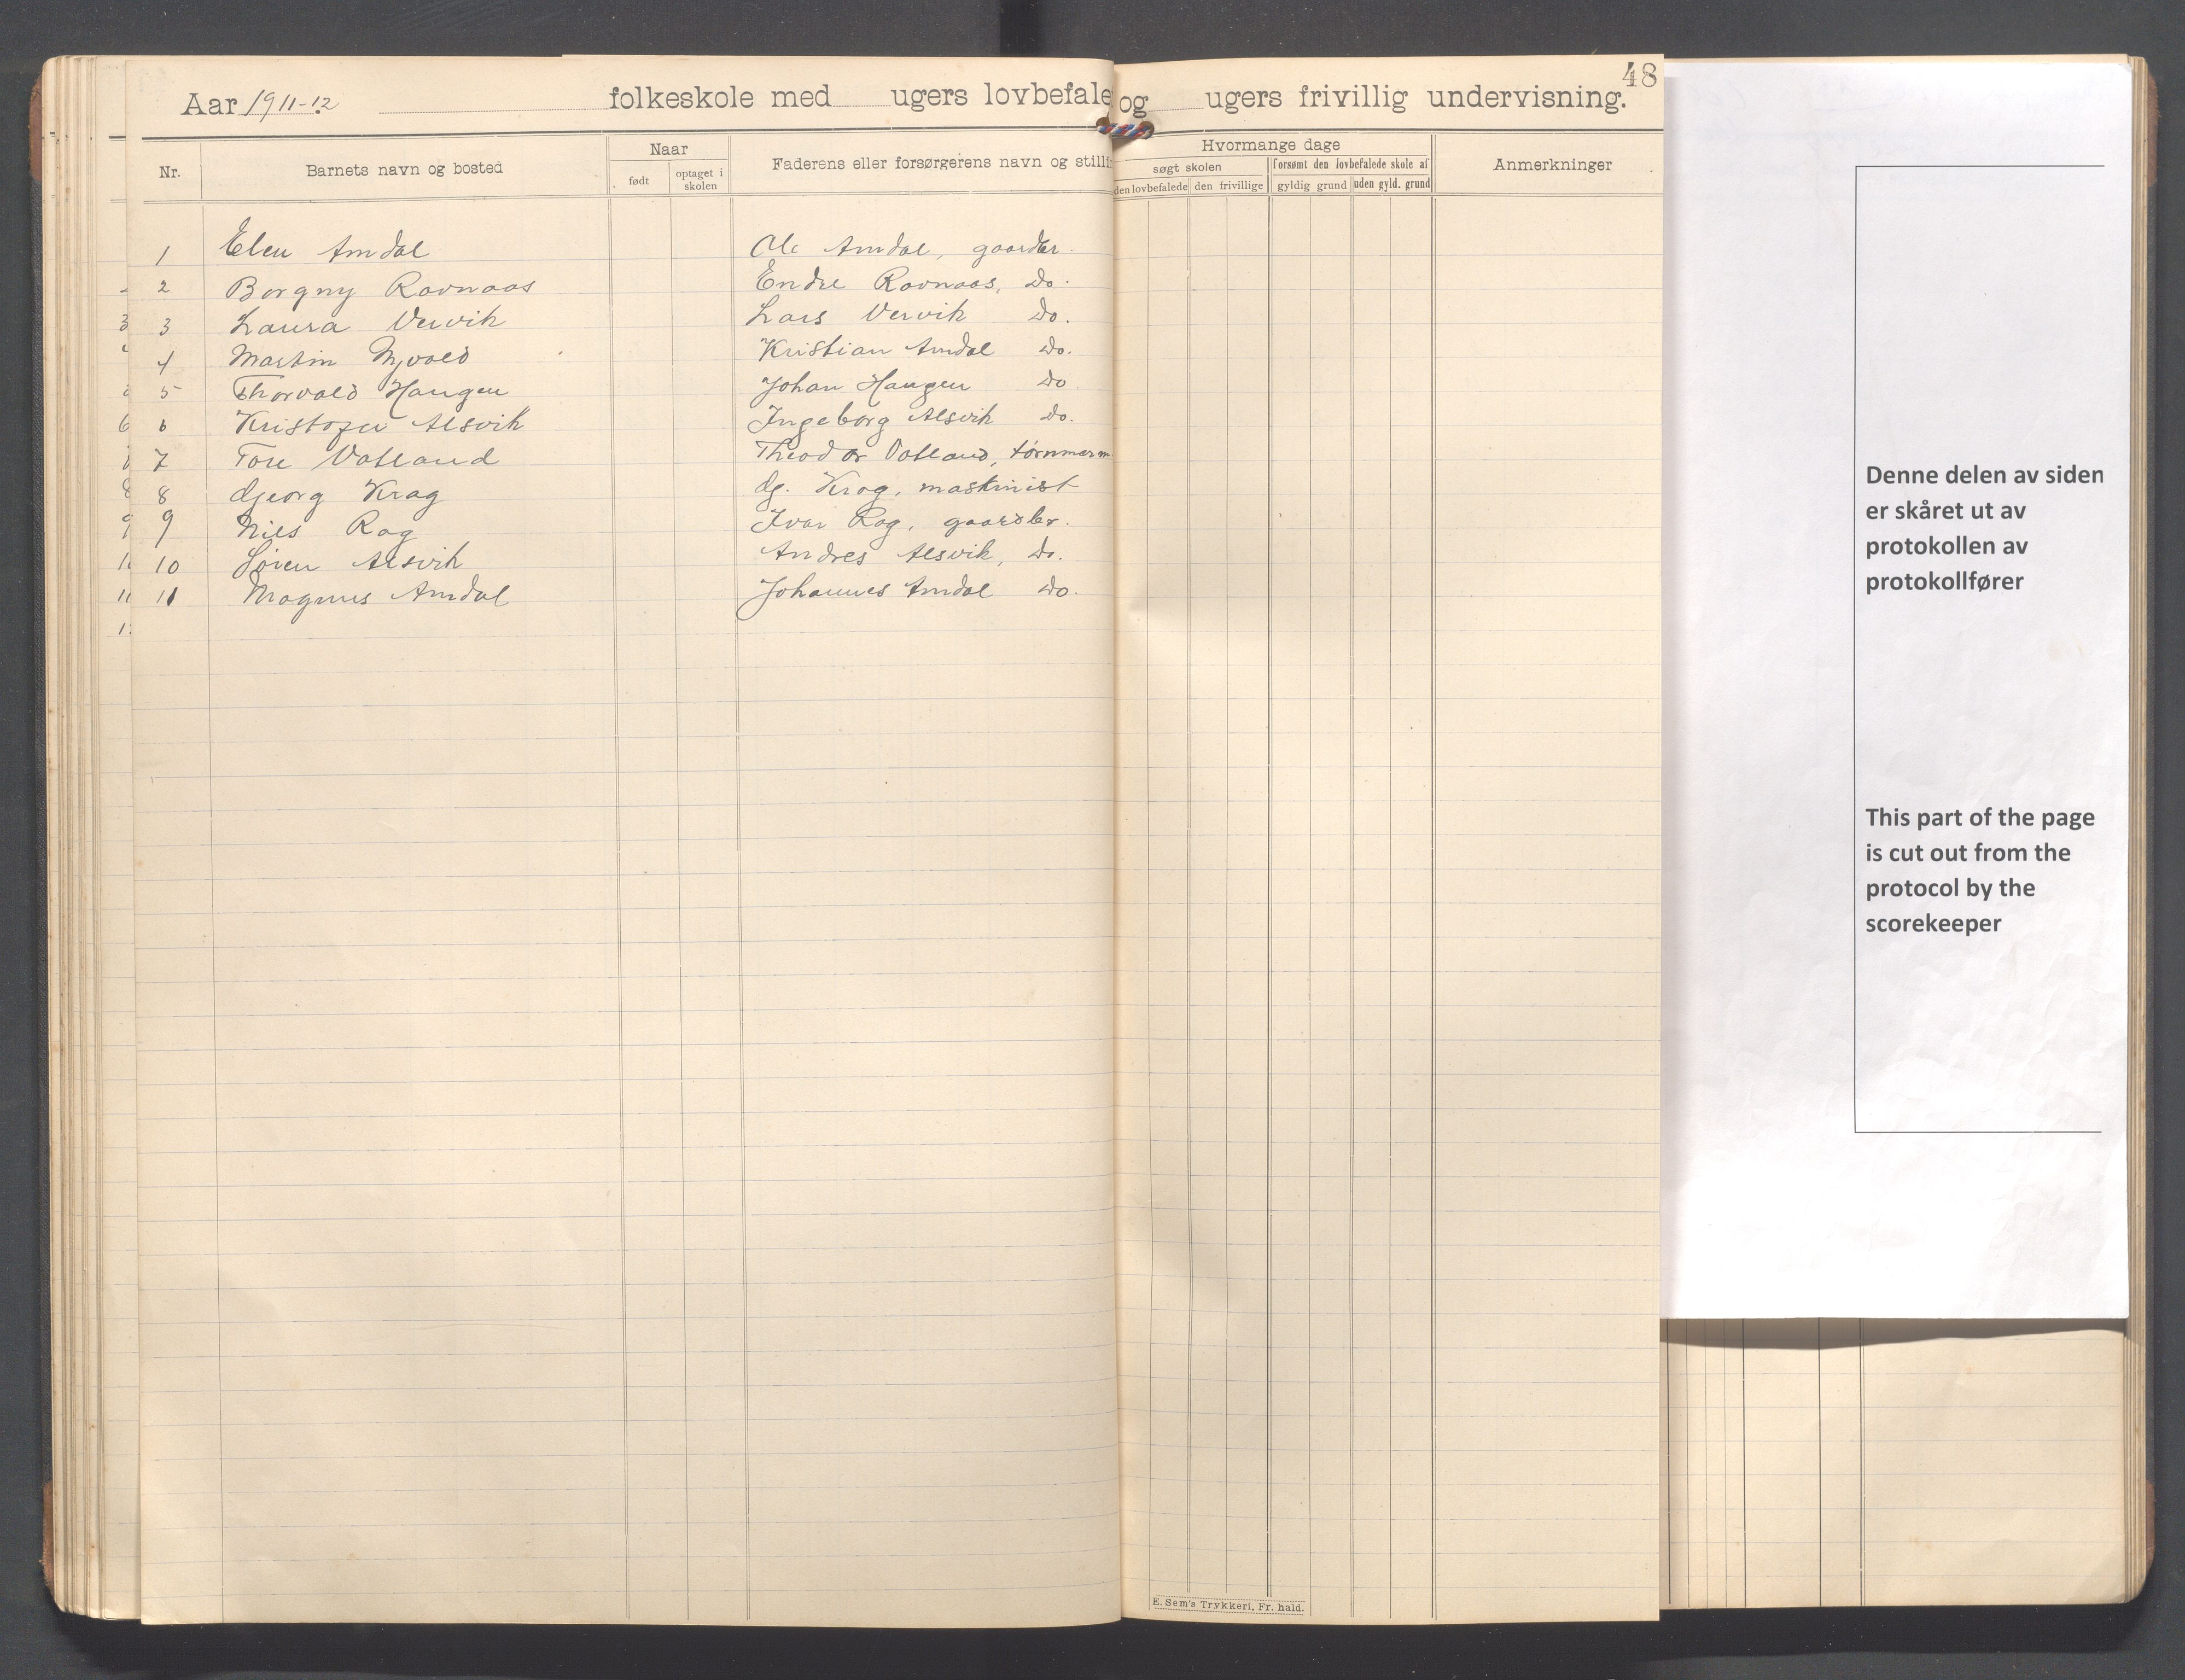 48
Aar 1911-12 folkeskole med ugers lovbefale og ugers frivillig undervisning.
Nr. Barnets navn og bosted Naar Faderens eller forsørgerens navn og stilli Hvormange dage Anmerkninger
født optaget i skolen søgt skolen forsømt den lovbefalede skole af
den lovbefalede den frivillige gyldig grund uden gyld. grund
1 Elen Amdal Ole Amdal, gaardbr.
2 Borgny Ravnaas Endre Ravnaas, Do.
3 Laura Vervik Lars Vervik Do.
4 Martin Kristian Amdal Do.
5 Thorvald Haugen Johan Haugen Do
6 Kristofer Alsvik Ingeborg Alsvik Do.
7 Tore Vatland Theodor Vatland, tømmerm
8 Georg Krag G. Krog, maskinist
9 Nils Rag Ivar Rag, gaardbr.
10 Søren Alsvik Andres Alsvik, Do.
11 Magnus Amdal Johannes Amdal Do.
E. Sem's Trykkeri, Fr. hald.
Denne delen av siden
er skåret ut av
protokollen av
protokollfører
This part of the page
is cut out from the
protocol by the
scorekeeper